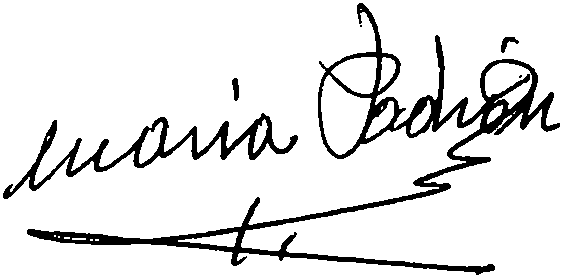 maria Padrón